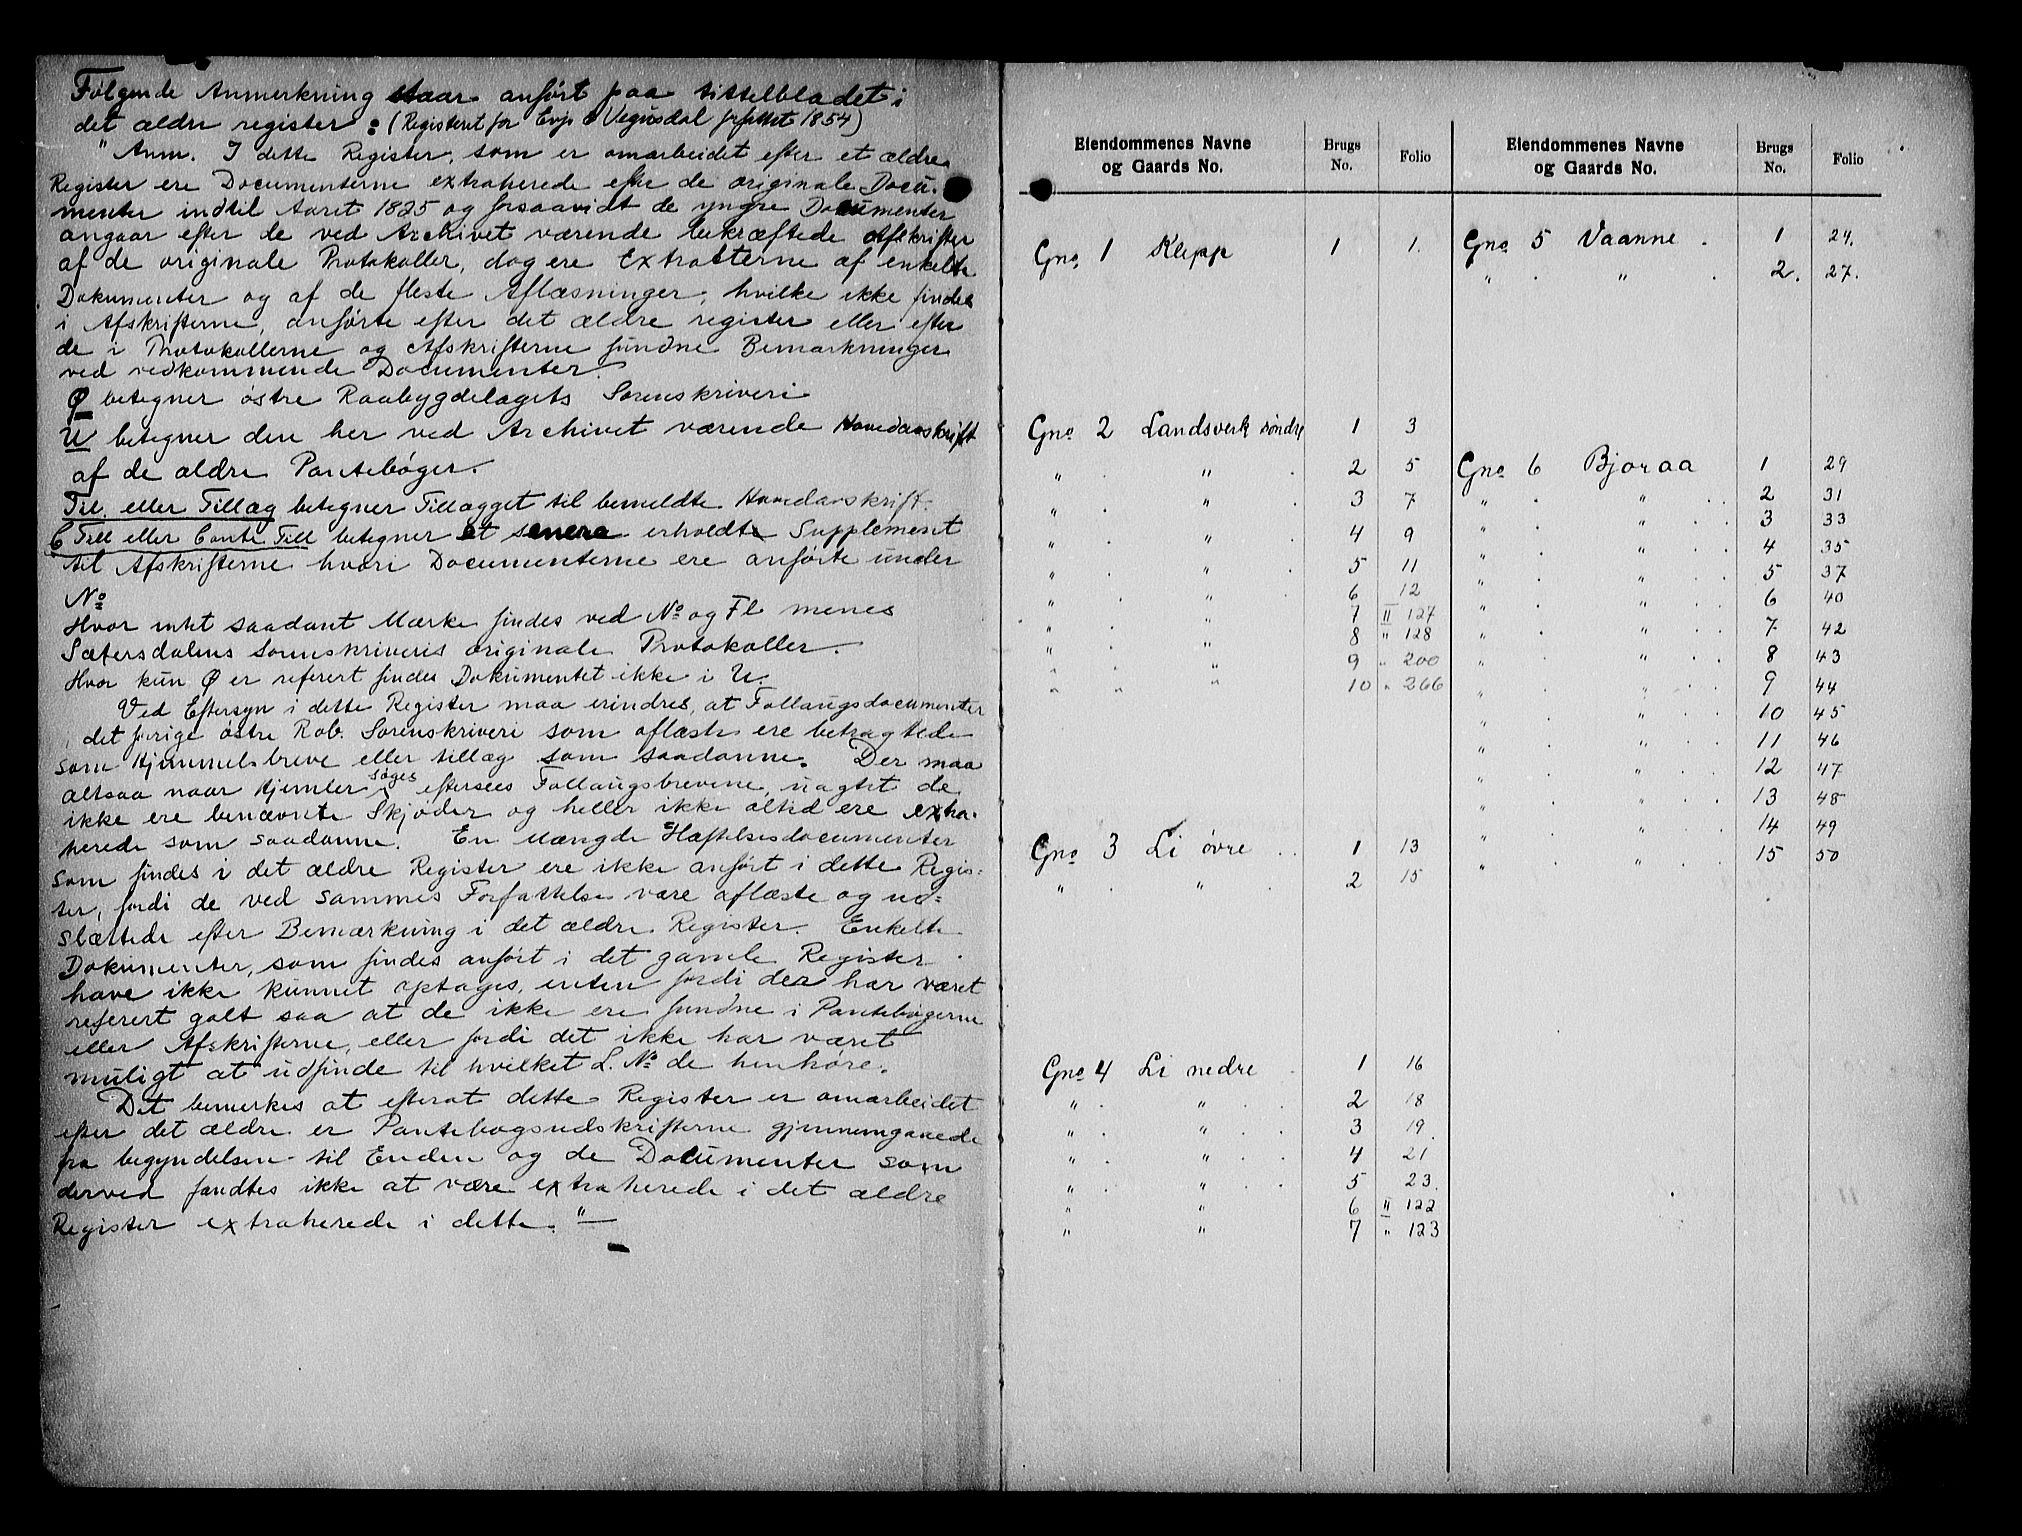 Følgende Anmerkning staar anført paa tittelbladet i
det ældre register: (Registeret for Evje & Vegusdal forfattet 1854)
"Anm. I dette Register, som er omarbeidet efter et ældre
Register ere Documenterne extraherede efter de originale Docu-
menter indtil Aaret 1825 og forsaavidt de yngre Documenter
angaar efter de ved Archivet værende bekræftede Afskrifter
af de originale Protokoller, dog ere Extracterne af enkelte
Dokumenter og af de fleste Aflæsninger, hvilke ikke findes
i Afskrifterne, anførte efter det ældre register eller efter
de i Protokollerne og Afskrifterne fundne Bemærkninger
ved vedkommende Documenter.
Ø betegner østre Raabygdelagets Sorenskriveri
U betegner den her ved Archivet værende Hovedavskrift
af de ældre Pantebøger.
Til. eller Tillæg betegner Tillægget til bemeldte Hovedavskrift.
C Till eller Contr Till betegner et senere erholdte Supplement
til Afskrifterne hvori Documenterne ere anførte under
No
Hvor intet saadant Mærke findes ved No og Fl menes
Sætersdalens Sorenskriveris originale Protokoller.
Hvor kun Ø er referert findes Dokumentet ikke i U.
Ved Eftersyn i dette Register maa erindres, at Follaugsdocumenter
i det forige østre Rab. Sorenskriveri som oflæste ere betragtede
som Hjemmelsbreve eller tillæg som saadanne. Der maa
altsaa naar Hjemler søges eftersees Follaugsbrevene, uagtet de
ikke ere benævnte Skjøder og heller ikke altid ere extra-
herede som saadanne. En Mængde Hæftelsesdocumenter
som findes i det ældre Register ere ikke anført i dette Regis-
ter, fordi de ved sammes Forfattelse vare aflæste og ud-
slættede efter Bemærkning i det ældre Register. Enkelte
Dokumenter, som findes anført i det gamle Register
have ikke kunnet optages, enten fordi der har været
referert galt saa at de ikke ere fundne i Pantebøgerne
eller Afskrifterne, eller fordi det ikke har været
muligt at udfinde til hvilket L. No de henhøre.
Det bemerkes at efterat dette Register er omarbeidet
efter det ældre er Pantebogsudskrifterne gjennemgaaede
fra begyndelsen til Enden og de Documenter som
derved fandtes ikke at være extraherede i det ældre
Register extraherede i dette."
Eiendommenes Navne og Gaards No. Brugs No. Folio
Gno 1 Klepp 1 1.
Gno 2 Landsverk søndre 1 3
" " 2 5
" " 3 7
" " 4 9
" " 5 11
" " 6 12
" " 7 II 127
" " 8 " 128
" " 9 " 200
" " " 10 " 266
Gno 3 Li øvre 1 13
" " 2 15
Gno 4 Li nedre 1 16
" " 2 18
" " 3 19
" " 4 21
" " 5 23.
" " 6 II 122
" " 7 " 123
Eiendommenes Navne og Gaards No. Brugs No. Folio
Gno 5 Vaanne 1 24.
" " 2. 27.
Gno 6 Bjoraa 1 29
" " 2 31
" " 3 33
" " 4 35
" " 5 37
" " 6 40
" " 7 42
" " 8 43
" " 9 44
" " 10 45
" " 11 46
" " 12 47
" " 13 48
" " 14 49
" " 15 50